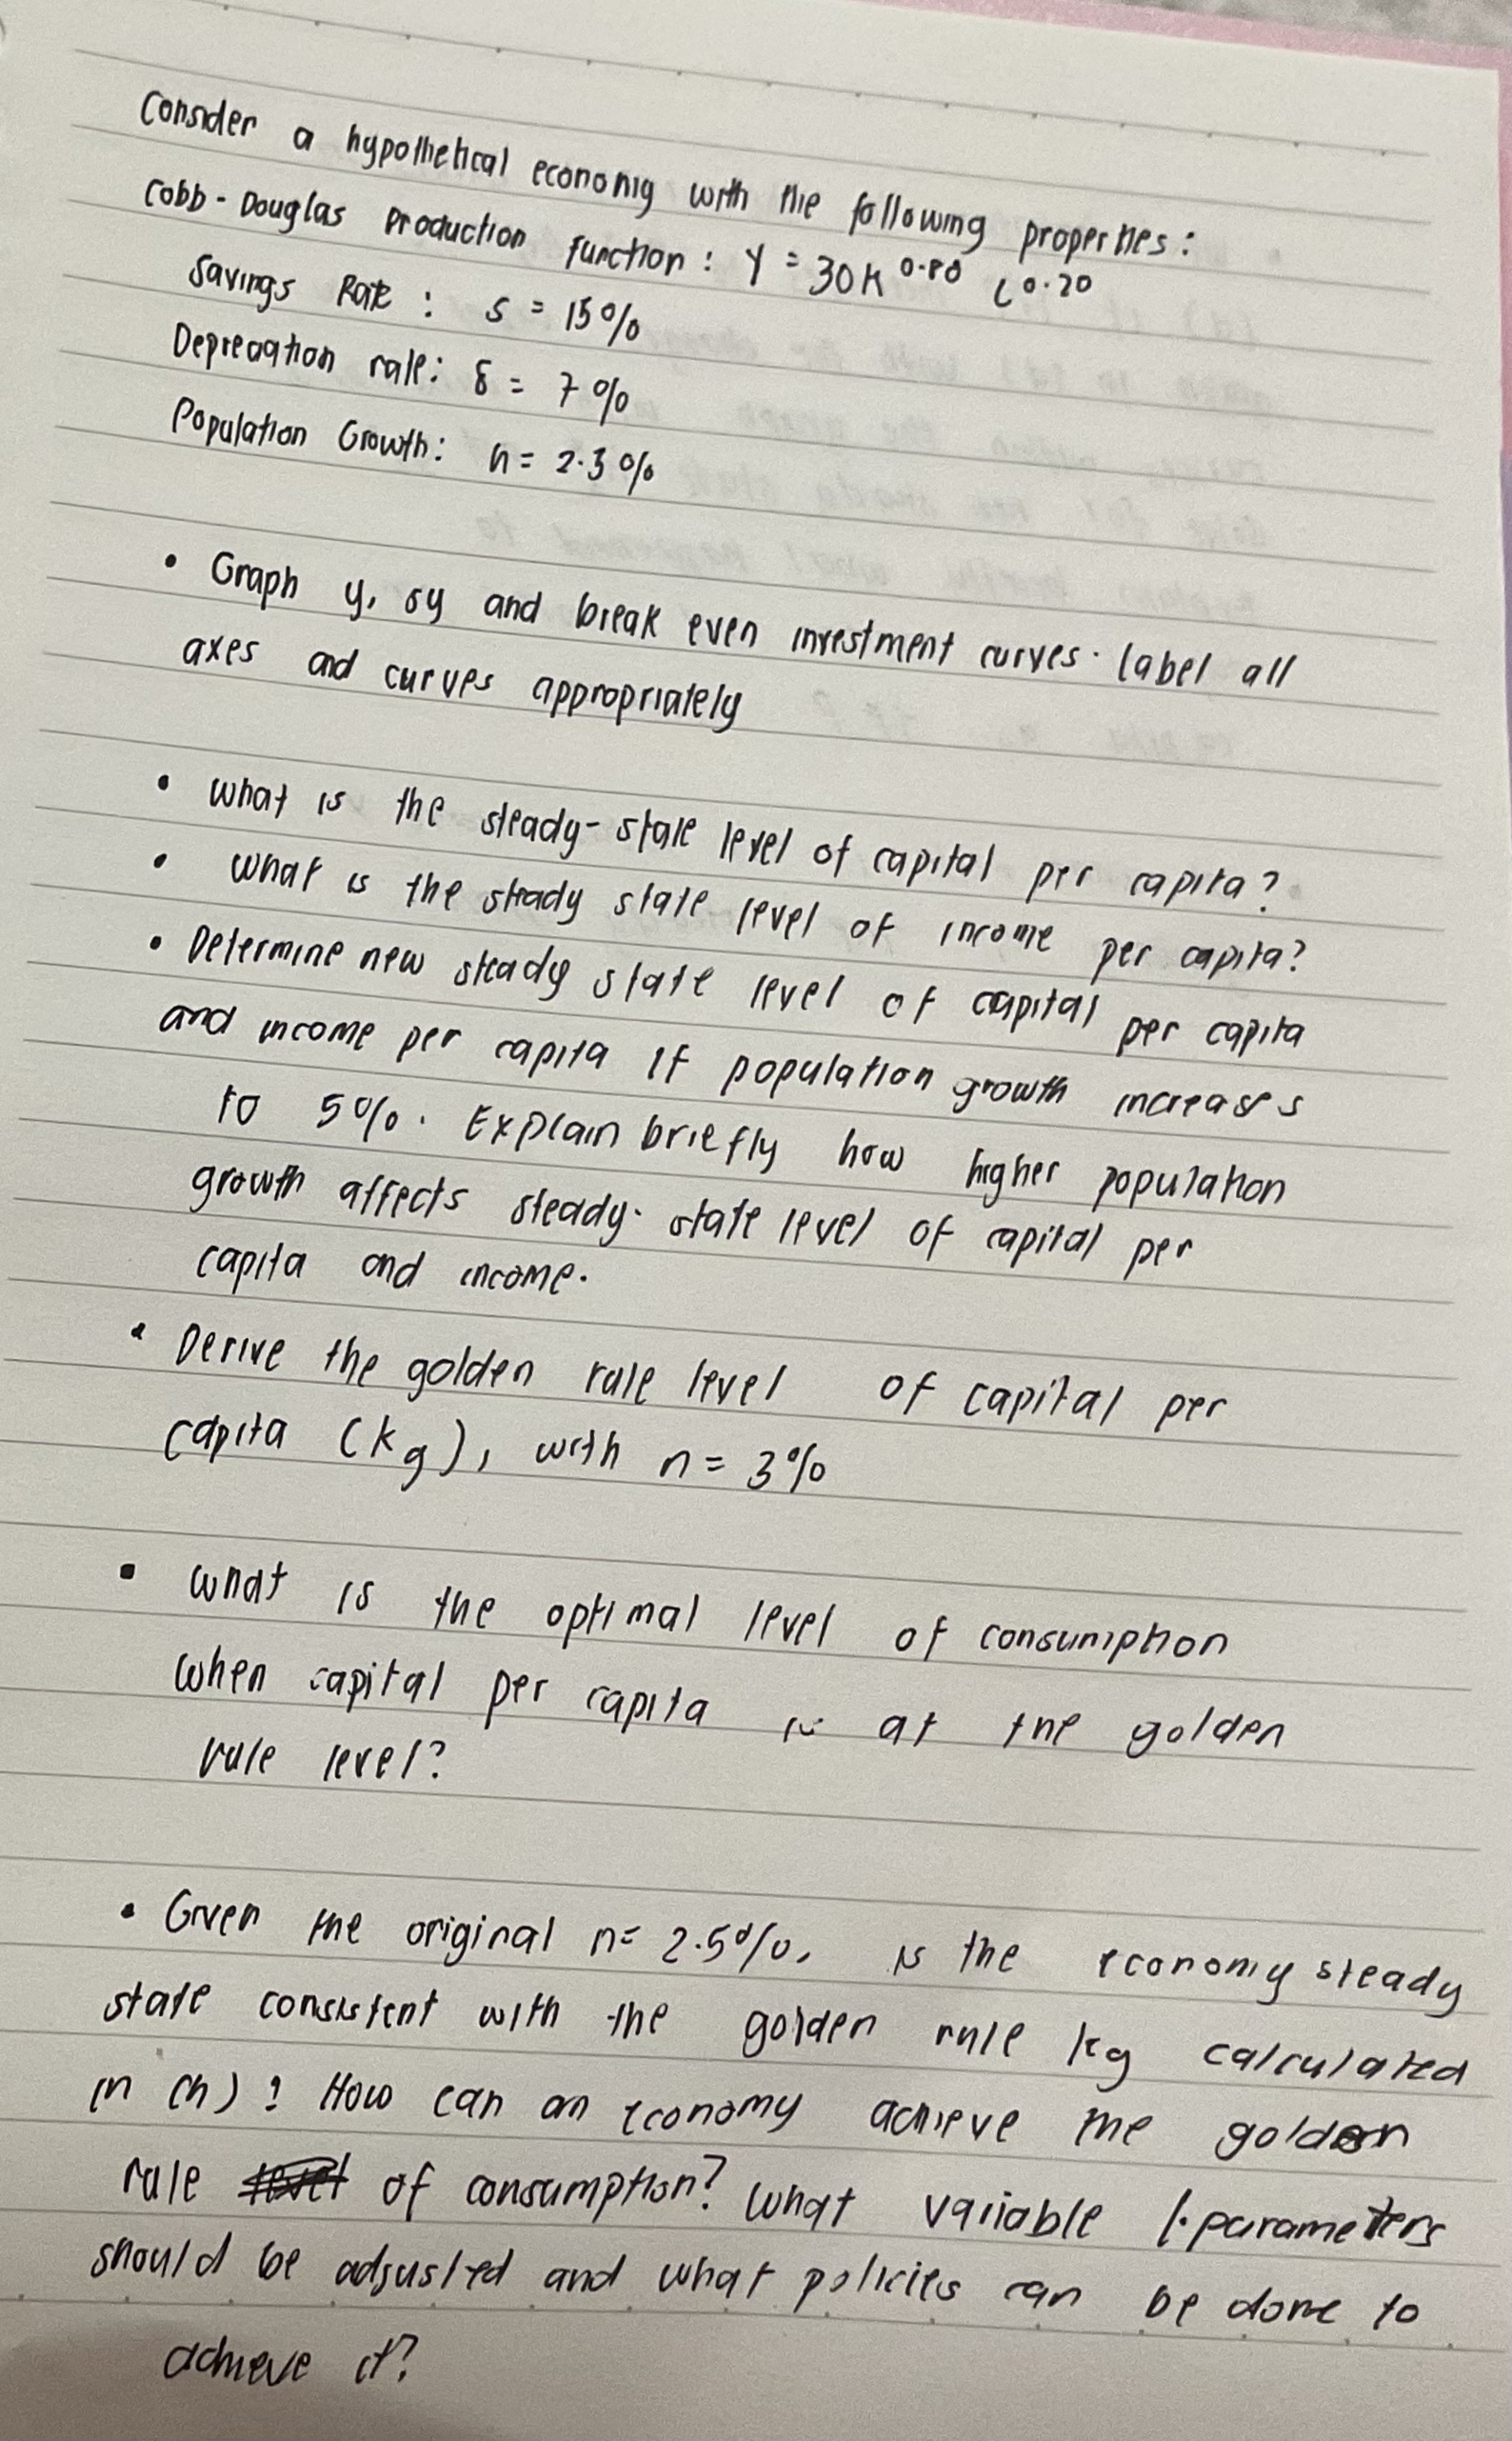 Consider a hypothetical economy with the following properties:
Cobb-Douglas Production function: Y = 30K^0.80 L^0.20
Savings Rate: s = 15%
Depreciation rate: δ = 7%
Population Growth: n = 2.3%
• Graph y, sy and break even investment curves. label all
axes and curves appropriately
• what is the steady-state level of capital per capita?
• what is the steady state level of income per capita?
• Determine new steady state level of capital per capita
and income per capita if population growth increases
to 5%. Explain briefly how higher population
growth affects steady-state level of capital per
capita and income.
• Derive the golden rule level of capital per
capita (kg), with n = 3%
• what is the optimal level of consumption
when capital per capita is at the golden
rule level?
• Given the original n= 2.5%, is the economy steady
state consistent with the golden rule kg calculated
in (h)? How can an economy achieve the golden
rule of consumption? what variable /.parameters
should be adjusted and what policies can be done to
achieve it?